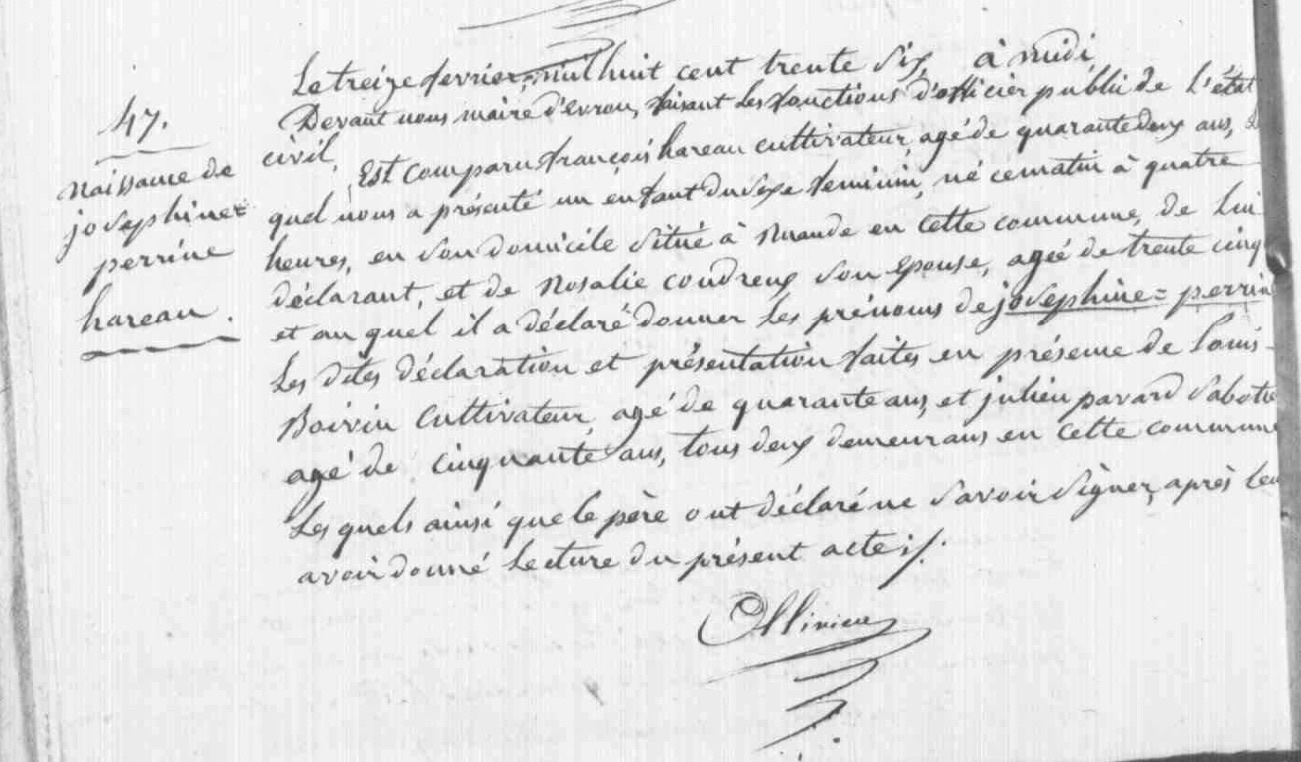 47.
Naissance de
josephine=
perrine
hareau.
Le treize fevrier, mil huit cent trente six, à midi,
Devant nous maire d'evron, faisant les fonctions d'officier public de L'état
civil,
Est comparu françois hareau cultivateur, agé de quarante deux ans,
quel nous a présenté un enfant du sexe feminin, né ce matin à quatre
heures, en son domicile situé à en cette commune, de lui
déclarant, et de Rosalie coudreux son epouse, agée de trente cinq
et au quel il a déclaré donner les prénoms de josephine=perrine
Les dites déclaration et présentation faites en présence de Louis
Boivin cultivateur, agé de quarante ans, et julien pavard Sabotie
agé de cinquante ans, tous deux demeurans en cette commune
Les quels ainsi que le père ont déclaré ne savoir signer, après leu
avoir donné Lecture du présent acte ;/.